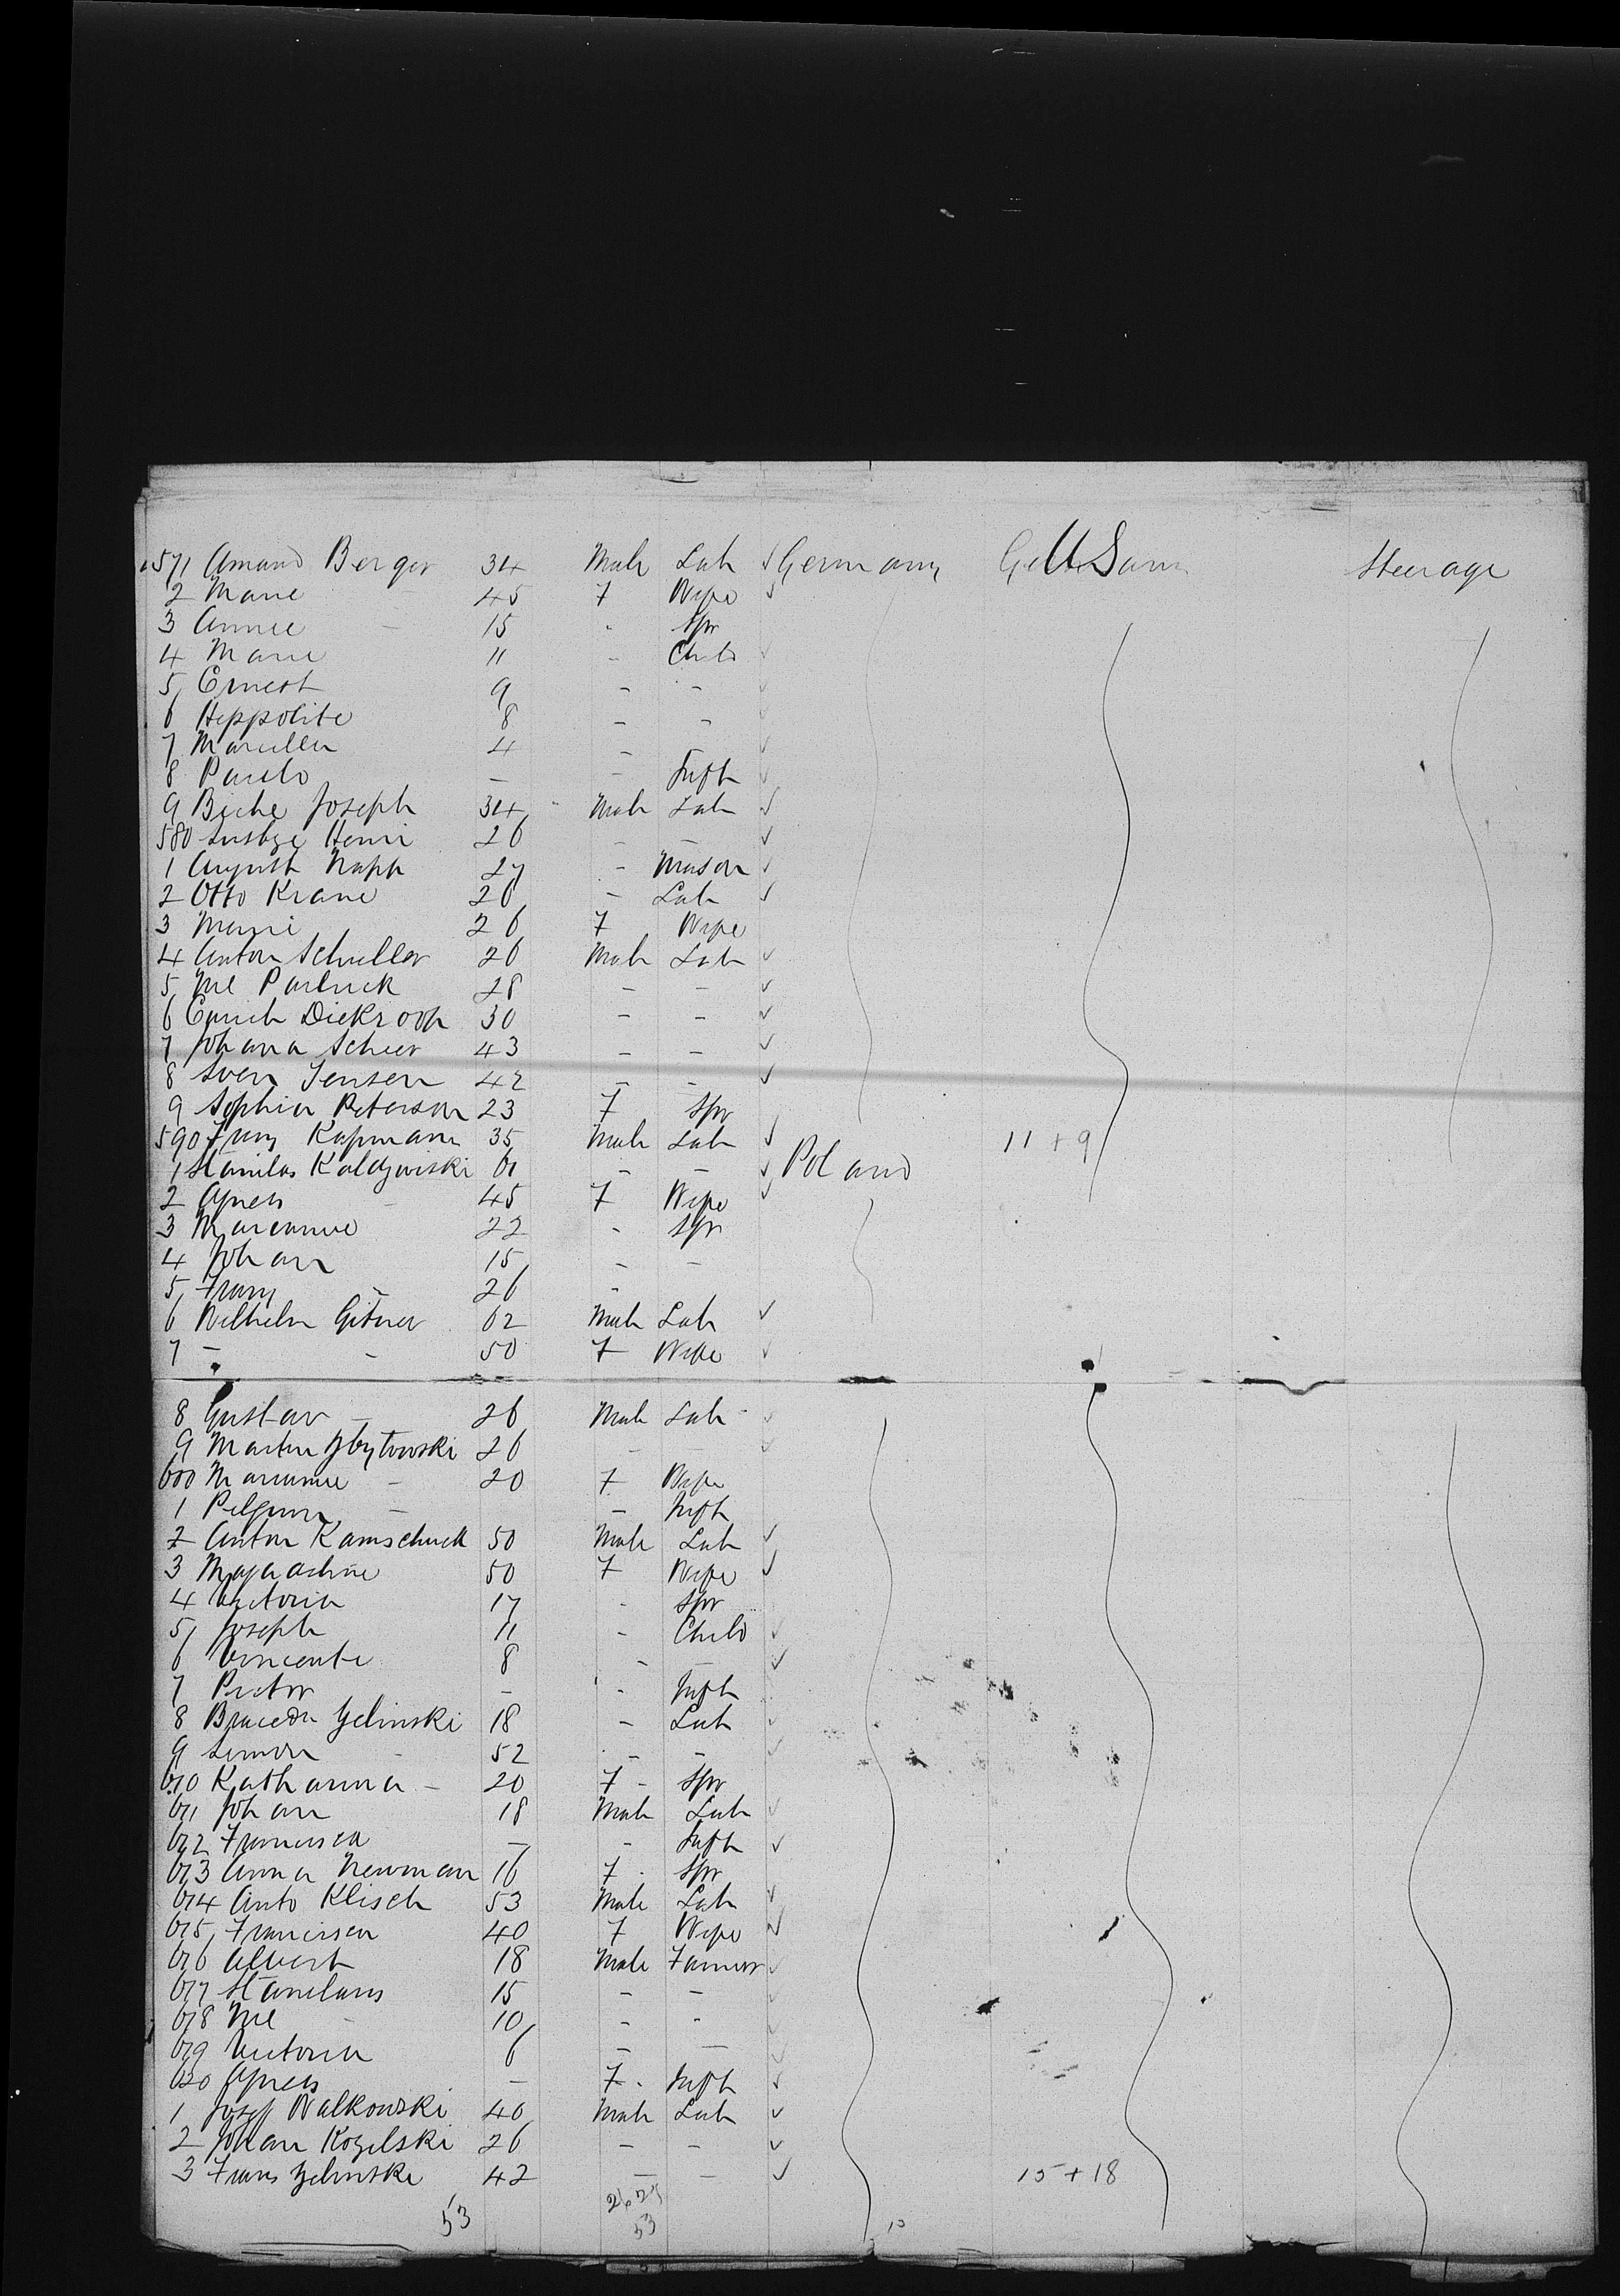 571 Amand Berger 34 Male Lab Germany U S Steerage
2 Marie 45 F Wife
3 Annie - 15 - Spr
4 Marie 11 - Child
5 Ernest 9 - -
6 Heppolite 8 - -
7 4 -
8 - - Inft
9 Biche Joseph 34 Male Lab
580 Henri 26 - -
1 August Napp 27 - Mason
2 Otto Krane 26 - Lab
3 Marie 26 F Wife
4 Anton Schuller 26 Male Lab
5 28 - -
6 30 - -
7 Johana Scheer 43 - -
8 Sven Jensen 42 - -
9 Sophia Peterson 23 F Spr
590 Franz Kapmann 35 Male Lab 11 + 9
1 Stanilas 61 - - Poland
2 Agnes - 45 F Wife
3 Marianne 22 - Spr
4 Johan 15 - -
5 Franz - 26 -
6 Wilhelm Gitner 62 Male Lab
7 - - 50 F Wife
8 Gustav - 26 Male Lab
9 Martin Zbytowski 26 -
600 Marianne - 20 F Wife
1 - - Inft
2 Anton Kamschuck 50 Male Lab
3 50 F Wife
4 Victoria 17 - Spr
5 Joseph 11 - Child
6 Vincente 8 - -
7 - - Inft
8 Zelinski 18 - Lab
9 Simon - 52 - -
610 Katharina - 20 F - Spr
611 Johan 18 Male Lab
612 Francisca - - Inft
613 Anna Newman 16 F - Spr
614 Anto Klisch 53 Male Lab
615 Francisca 40 F Wife
616 Albert 18 Male Farmer
617 Stanilaus 15 - -
618 - 10 - -
619 Victoria 6 - -
620 Agnes - F - Inft
1 Josef Walkowski 40 Male Lab
2 Johan Kozelski 26 - -
3 Frans Zelinski 42 - - 15 + 18
53 26 27
53